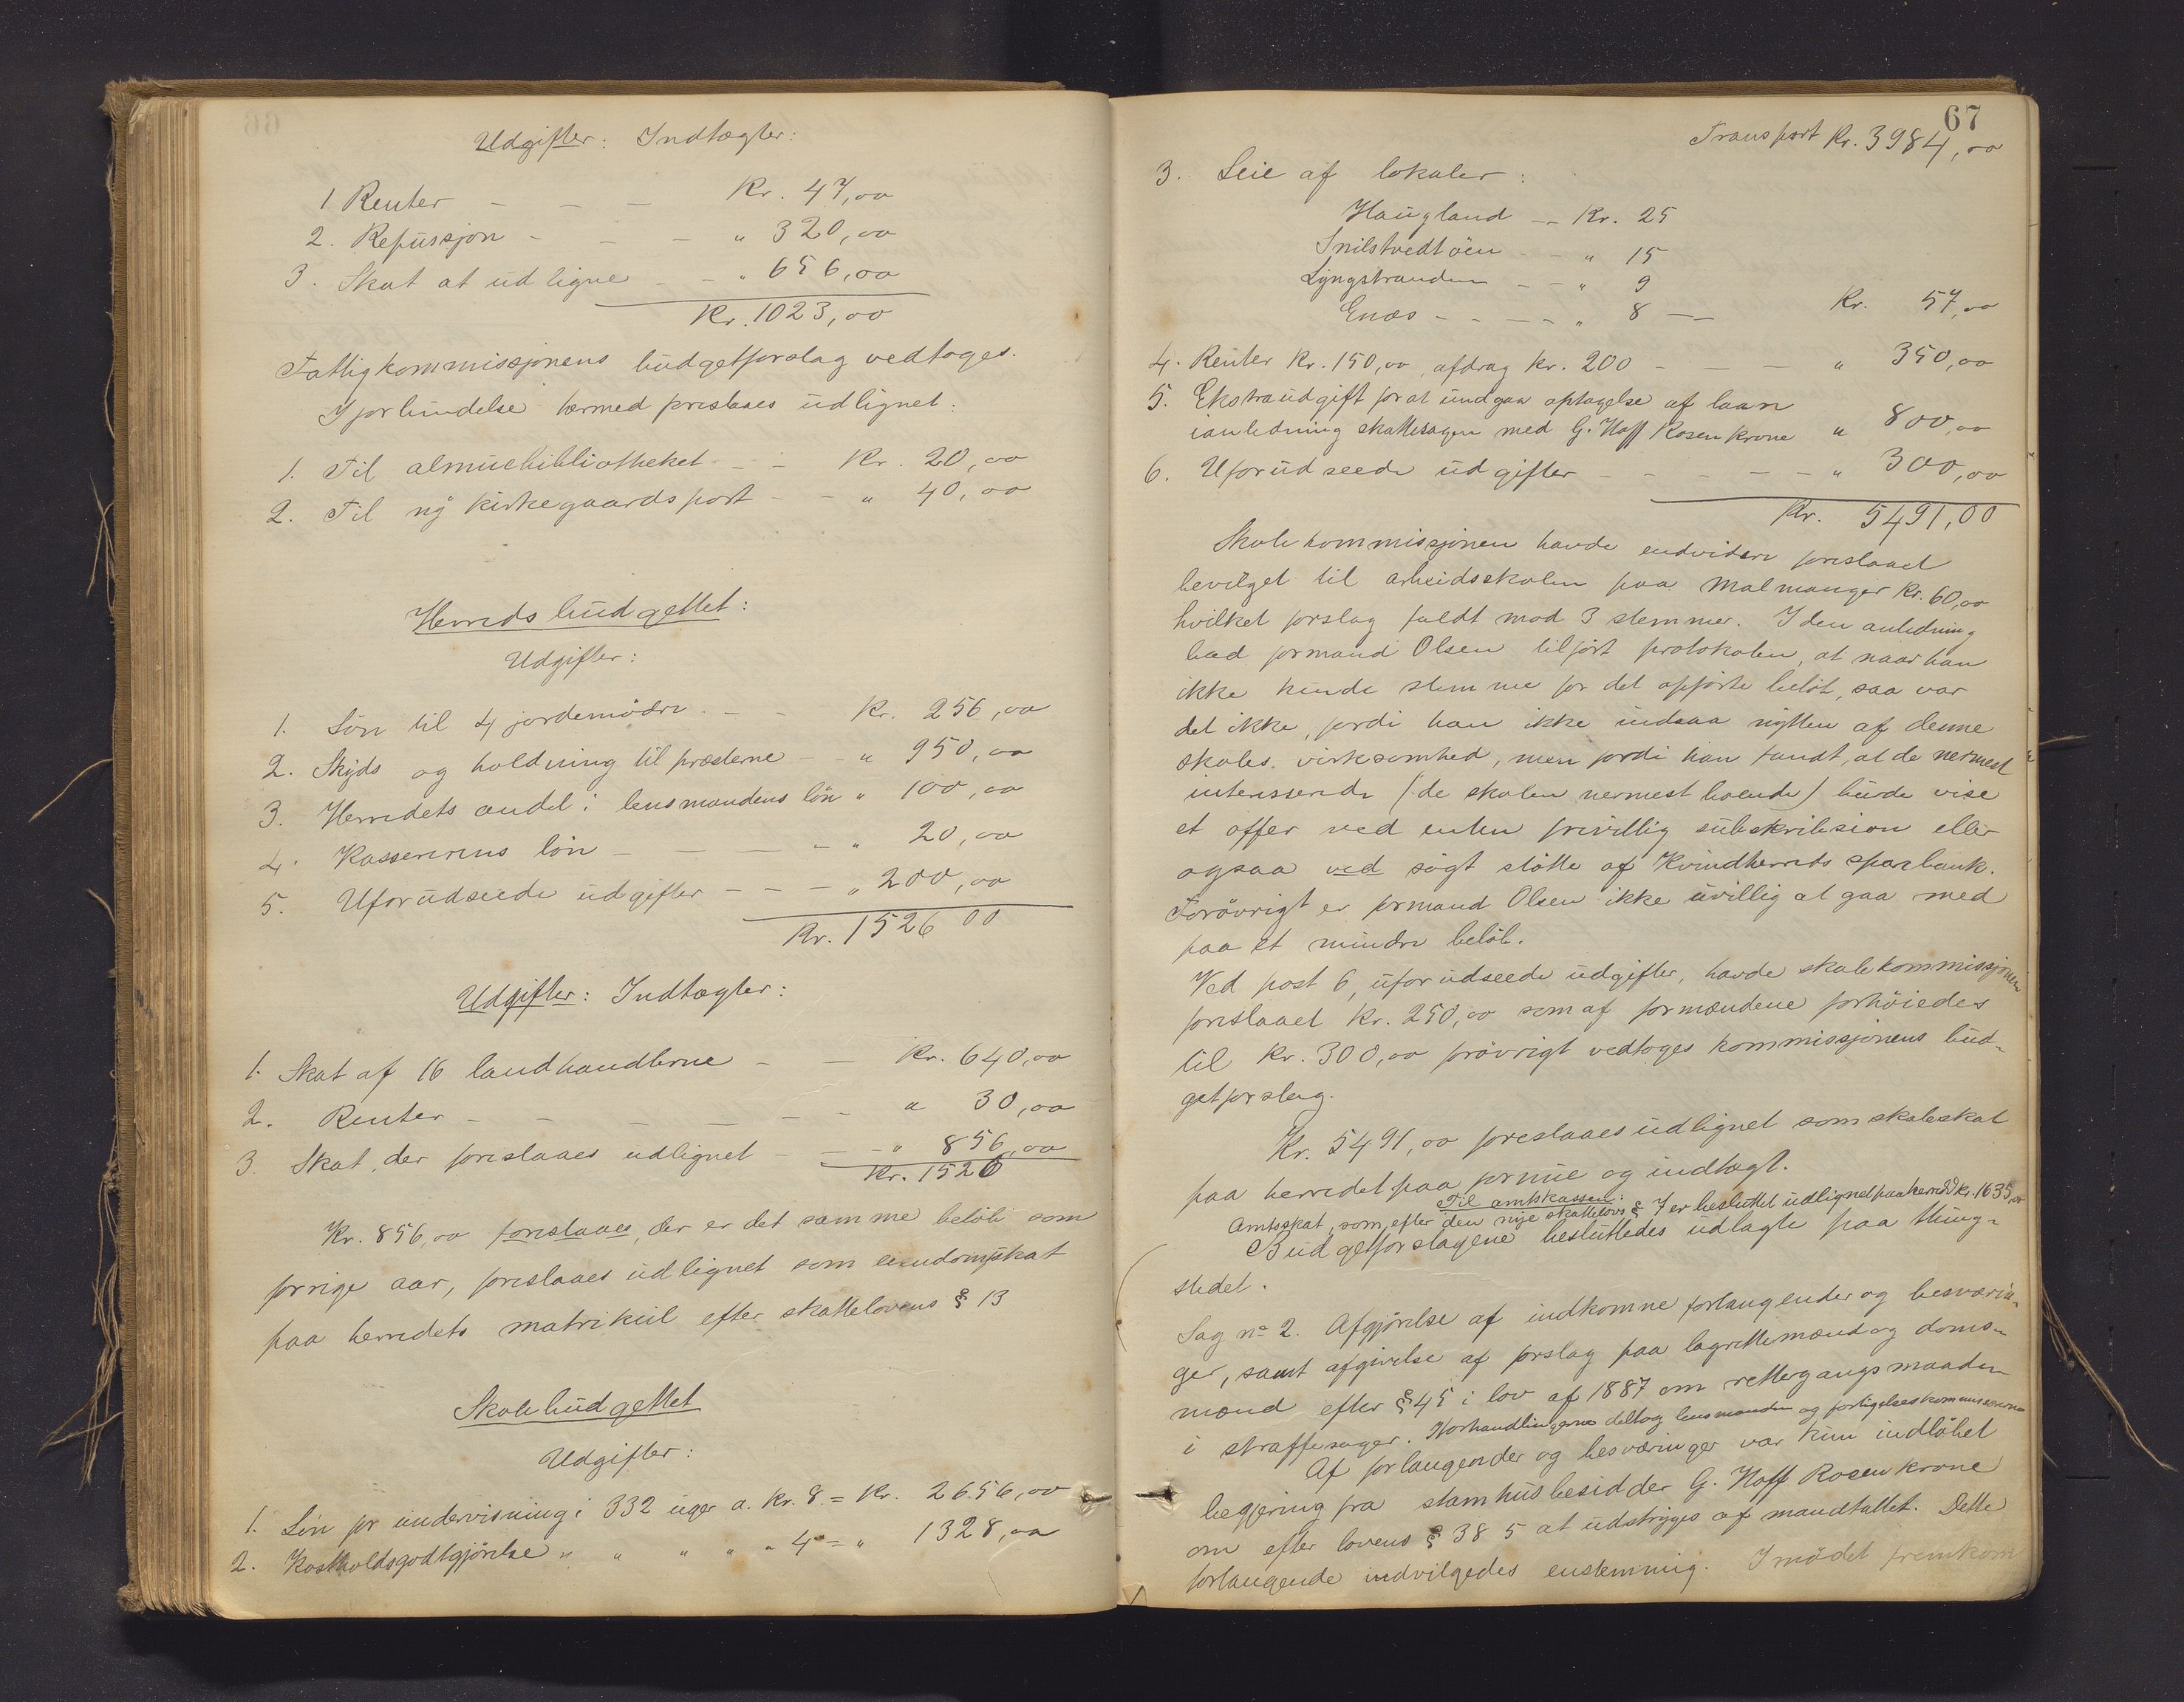 Udgifter: Indtægter:
1. Renter - - - Kr. 47,00
2. Refussjon - - - " 320,00
3. Skat at udligne - - " 656,00
Kr. 1023,00
Fattigkommissjonens budgetforslag vedtoges.
I forbindelse hermed foreslaaes udlignet:
1. Til almuebibliotheket - - Kr. 20,00
2. Til ny kirkegaardsport - - " 40,00
Herredsbudgettet:
Udgifter:
1. Løn til 4 jordemødre - - Kr. 256,00
2. Skyds og holdning til præsterne - - " 950,00
3. Herredets andel i lensmandens løn " 100,00
4. Kassererens løn - - - - - " 20,00
5. Uforudseede udgifter - - - " 200,00
Kr. 1526 00
Udgifter: Indtægter:
1. Skat af 16 landhandlerne - - Kr. 640,00
2. Renter - - - - - - " 30,00
3. Skat, der foreslaaes udlignet - - - " 856,00
Kr. 1526
Kr. 856,00 foreslaaes, der er det samme beløb som
forrige aar, foreslaaes udlignet som eiendomsskat
paa herredets matrikul efter skattelovens § 13
Skolebudgettet
Udgifter:
1. Løn for undervisning i 332 uger a. Kr. 8 = Kr. 2656,00
2. Kostholdsgodtgjørelse " " " " " 4 = " 1328,00
67
Transport Kr. 3984,00
3. Leie af lokaler:
Haugland - - Kr. 25
Snilstvedtøen - - " 15
Lyngstranden - - " 9
Enæs - - - - " 8 - - Kr. 57,00
4. Renter Kr. 150,00, afdrag Kr. 200 - - - " 350,00
5. Ekstraudgift for at undgaa optagelse af laan
ianledning skattesagen med G. Hoff Rosenkrone " 800,00
6. Uforudseede udgifter - - - - - " 300,00
Kr. 5491,00
Skolekommissjonen havde endvidere foreslaaet
bevilget til arbeidsskolen paa Malmanger Kr. 60,00
hvilket forslag faldt mod 3 stemmer. I den anledning
bad formand Olsen tilført protokolen, at naar han
ikke kunde stemme for det opførte beløb, saa var
det ikke, fordi han ikke indsaa nytten af denne
skoles virksomhed, men fordi han fandt, at de nermest
interesserede (de skolen nermest boende) burde vise
et offer ved enten frivillig subskribsion eller
ogsaa ved søgt støtte af Kvindherreds sparbank.
Forøvrigt er formand Olsen ikke uvillig at gaa med
paa et mindre beløb.
Ved post 6, uforudseede udgifter, havde skolekommissjonen
foreslaaet Kr. 250,00 som af formændene forhøiedes
til Kr. 300,00 forøvrigt vedtoges kommissjonens bud-
getforslag.
Kr. 5491,00 foreslaaes udlignet som skoleskat
paa herredet paa formue og indtægt.
Til amtskassen:
Amtsskat, som efter den nye skattelovs § 7 er besluttet udlignet paa herredet Kr. 1635,00
Budgetforslagene besluttedes udlagte paa thing-
stedet.
Sag no 2. Afgjørelse af indkomne forlangender og besværin-
ger, samt afgivelse af forslag paa lagrettemænd og doms-
mænd efter § 45 i lov af 1887 om rettergangsmaaden
i straffesager. I forhandlingerne deltog lensmanden og forligelseskommiserne
Af forlangender og besværinger var kun indløbet
begjering fra stamhusbesidder G. Hoff Rosenkrone
om efter lovens § 38 5 at udstryges af mandtallet. Dette
forlangende indvilgedes enstemmig. I mødet fremkom